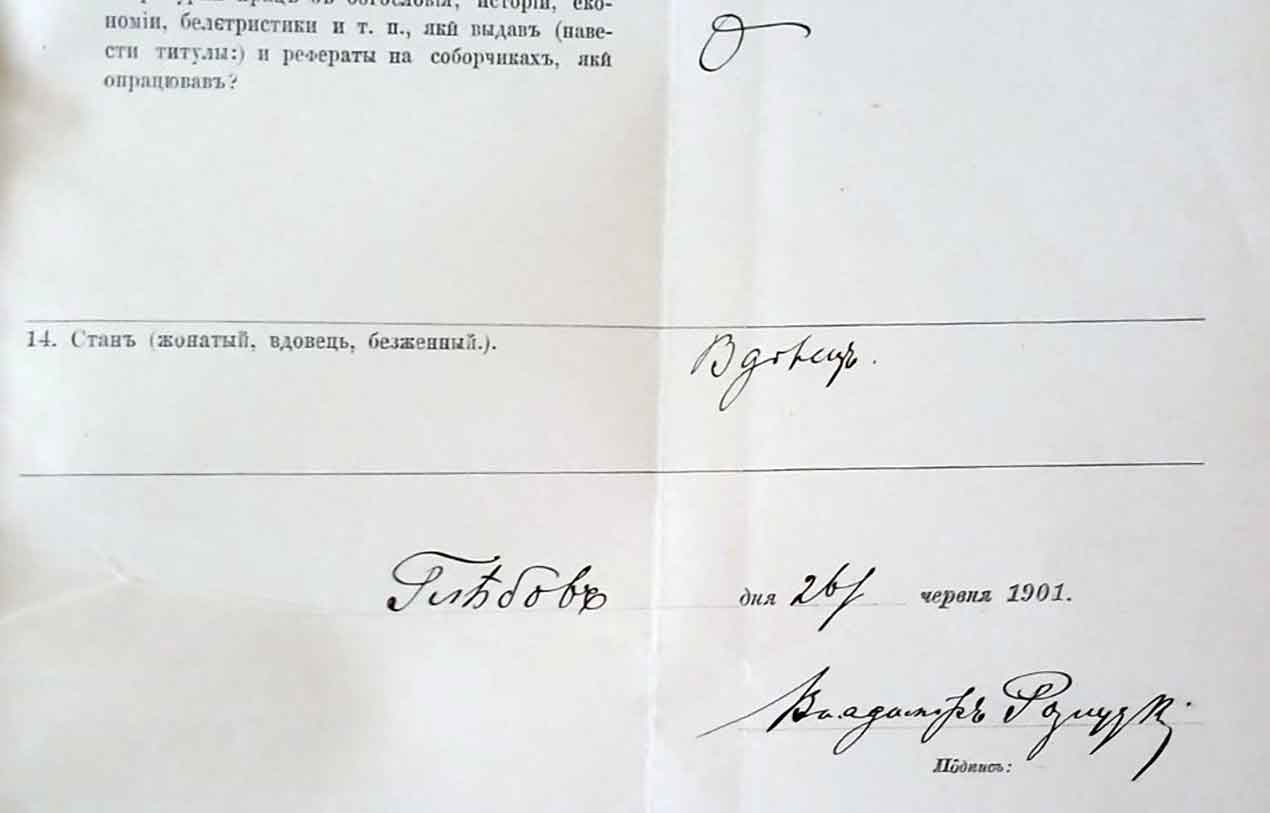 праць зъ богословія, исторіи, еко-
номіи, белєтристики и т. п., якй выдавъ (наве-
сти титулы:) и рефераты на соборчикахъ, якй
опрацювавъ?
14. Станъ (жонатый, вдовець, безженный.).
Вдовець.
Глѣбовъ дня 26/ червня 1901.
Владимѣръ
Пôдпись: